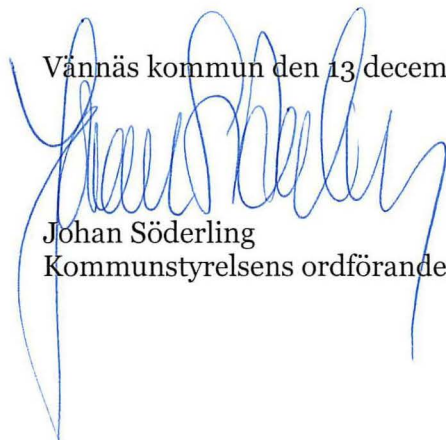 Vännäs kommun den 13 decem
Johan Söderling
Kommunstyrelsens ordförande